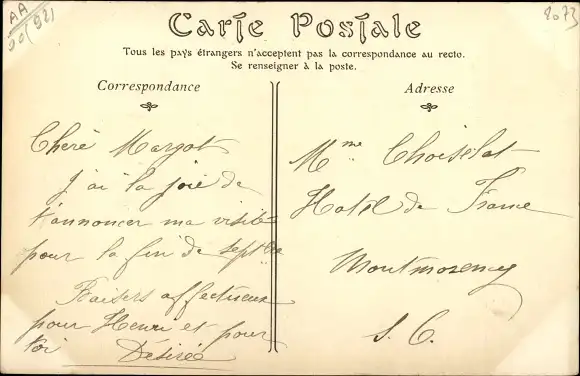 AA
90(92)
8073
Carte Postale
Tous les pays étrangers n'acceptent pas la correspondance au recto.
Se renseigner à la poste.
Correspondance
Chère Margot
J'ai la joie de
t'annoncer ma visite
pour la fin de septbre
Baisers affectueux
pour Henri et pour
toi Désirée
Adresse
Mme Choiselat
Hotel de France
Montmorency
S. O.